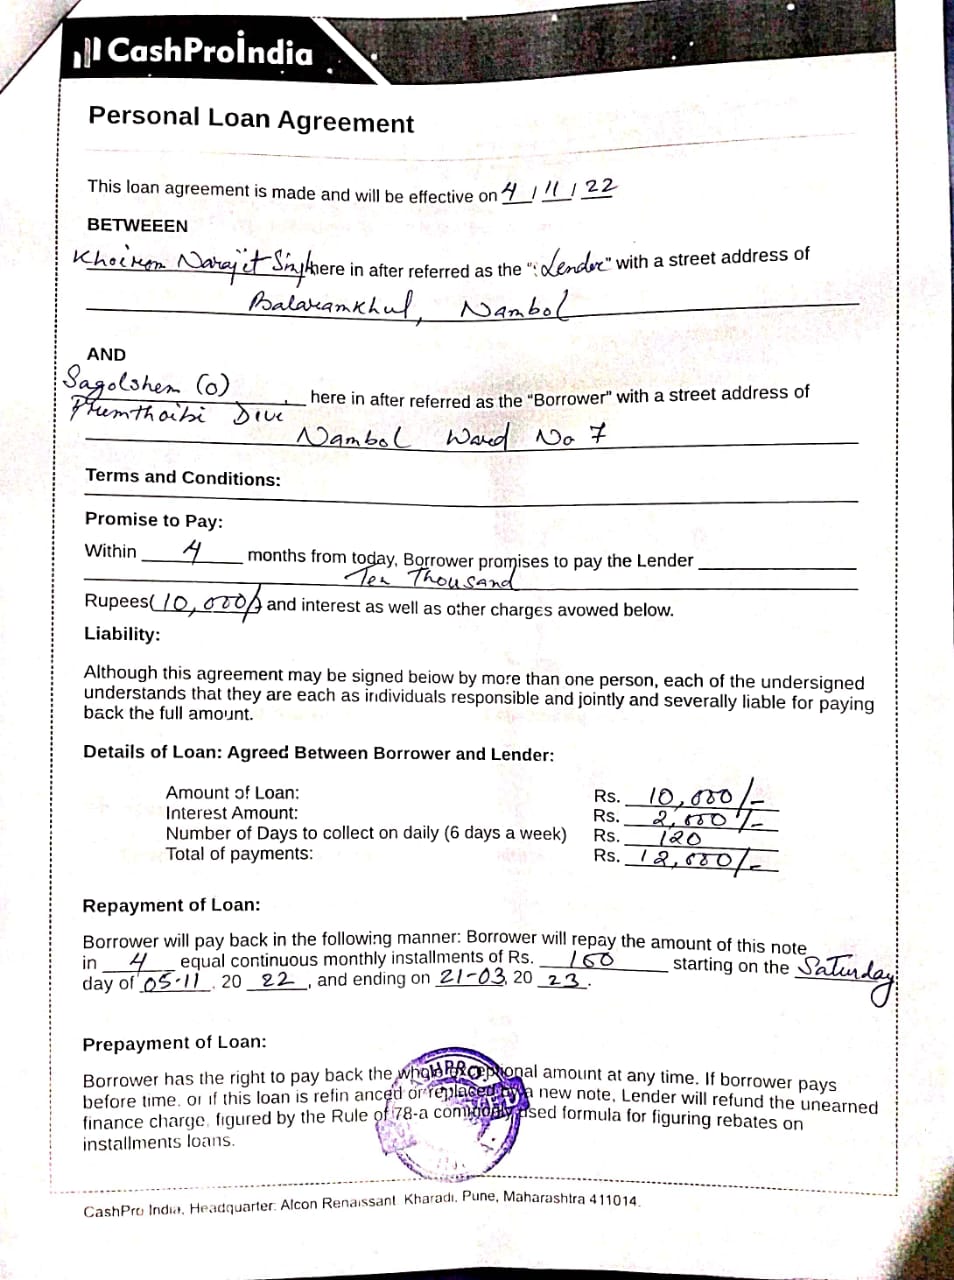 CashProİndia
Personal Loan Agreement
This loan agreement is made and will be effective on 4 / 11 / 22
BETWEEEN
Khoirom Narajit Singh here in after referred as the ": Lender" with a street address of
Balaramkhul, Nambol
AND
Sagolshem (o)
Phumthoibi Divi here in after referred as the "Borrower" with a street address of
Nambol Ward No 7
Terms and Conditions:
Promise to Pay:
Within 4 months from today, Borrower promises to pay the Lender
Ten Thousand
Rupees(10,000/-) and interest as well as other charges avowed below.
Liability:
Although this agreement may be signed below by more than one person, each of the undersigned
understands that they are each as individuals responsible and jointly and severally liable for paying
back the full amount.
Details of Loan: Agreed Between Borrower and Lender:
Amount of Loan: Rs. 10,000/-
Interest Amount: Rs. 2,000/-
Number of Days to collect on daily (6 days a week) Rs. 120
Total of payments: Rs. 12,000/-
Repayment of Loan:
Borrower will pay back in the following manner: Borrower will repay the amount of this note
in 4 equal continuous monthly installments of Rs. 100 starting on the Saturday
day of 05-11, 20 22, and ending on 21-03, 20 23.
Prepayment of Loan:
Borrower has the right to pay back the whole exceptional amount at any time. If borrower pays
before time. or if this loan is refin anced or replaced by a new note, Lender will refund the unearned
finance charge, figured by the Rule of 78-a commonly used formula for figuring rebates on
installments loans.
CashPro India, Headquarter: Alcon Renaissant Kharadi, Pune, Maharashtra 411014.